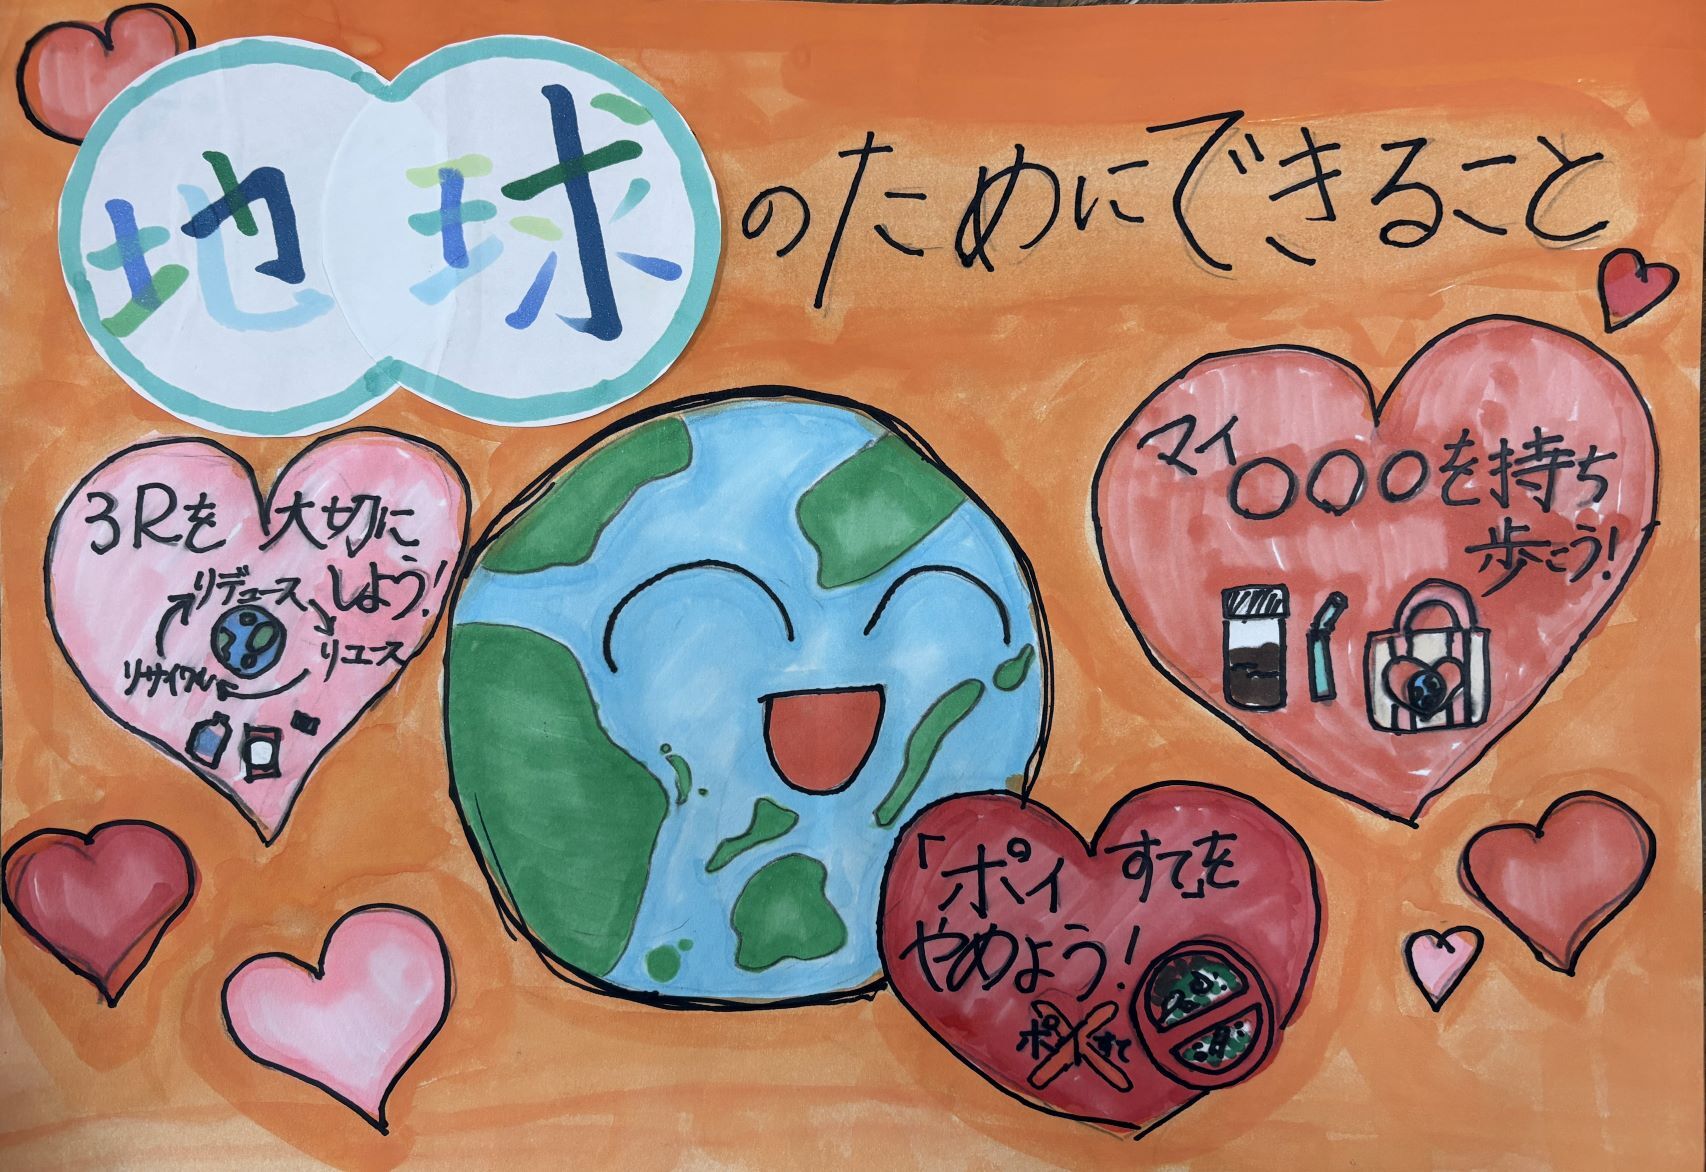 地球のためにできること
3Rを大切に
しよう!
リデュース
リユース
リサイクル
マイ〇〇〇を持ち
歩こう!
「ポイすて」を
やめよう!
ポイすて